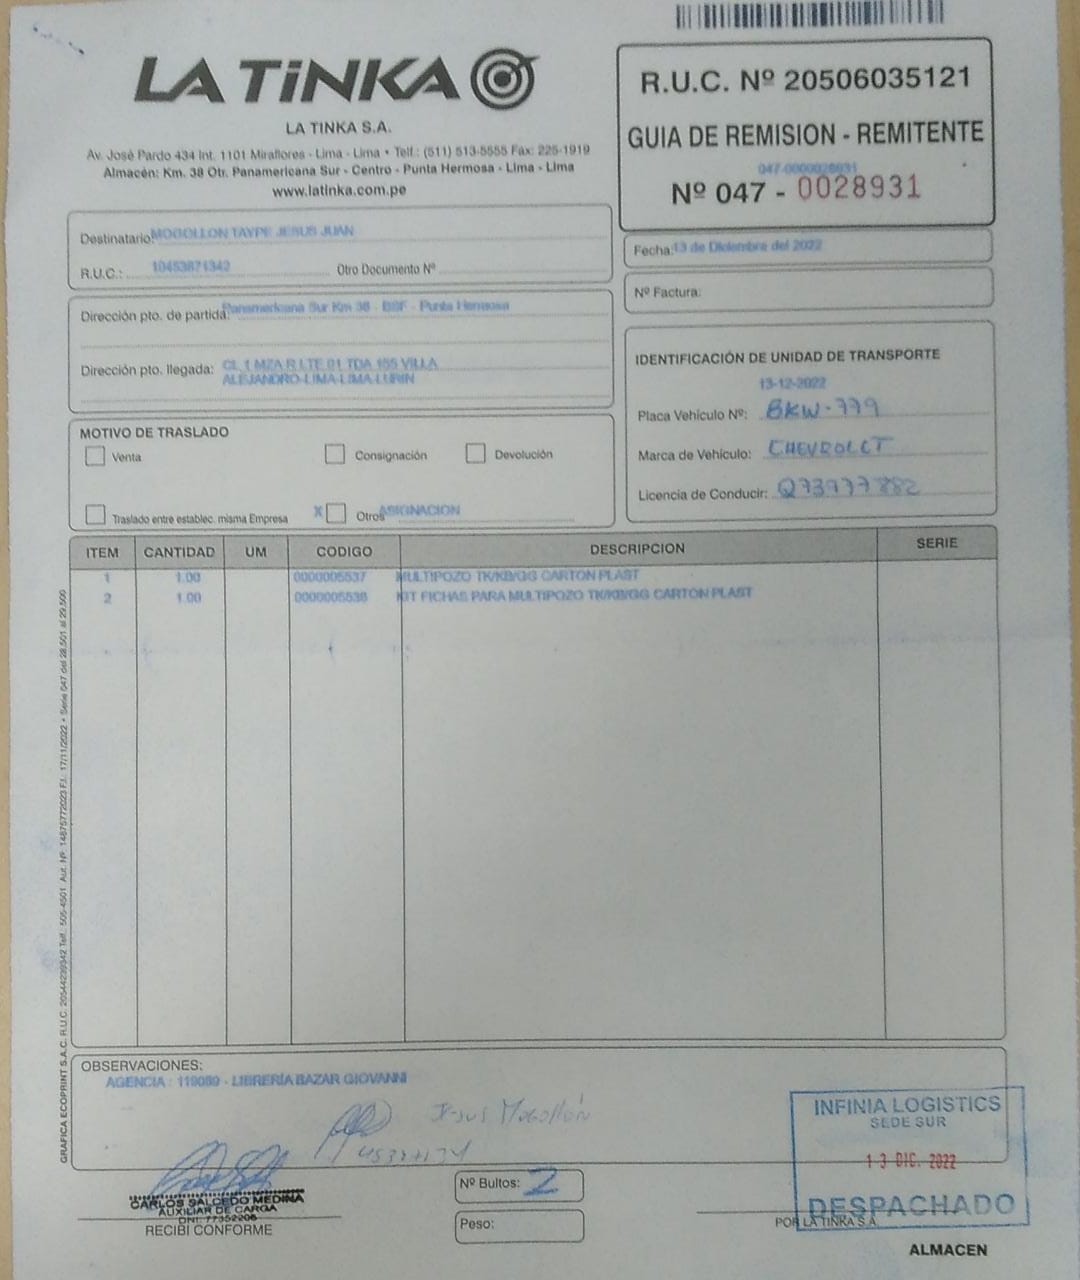 LA TiNKA
LA TINKA S.A.
Av. José Pardo 434 Int. 1101 Miraflores - Lima - Lima • Telf.: (511) 513-5555 Fax: 225-1919
Almacén: Km. 38 Otr. Panamericana Sur - Centro - Punta Hermosa - Lima - Lima
www.latinka.com.pe
R.U.C. Nº 20506035121
GUIA DE REMISION - REMITENTE
047-0000028931
Nº 047 - 0028931
Destinatario: MOGOLLON TAYPE JESUS JUAN
R.U.C.: 10453871342 Otro Documento Nº
Fecha: 13 de Diciembre del 2022
Nº Factura:
Dirección pto. de partida: Panamericana Sur Km 38 - BSF - Punta Hermosa
Dirección pto. llegada: CL 1 MZA R LTE 01 TDA 155 VILLA
ALEJANDRO-LIMA-LIMA-LURIN
IDENTIFICACIÓN DE UNIDAD DE TRANSPORTE
13-12-2022
Placa Vehículo Nº: BKW-779
Marca de Vehículo: CHEVROLET
Licencia de Conducir: Q73977882
MOTIVO DE TRASLADO
Venta Consignación Devolución
Traslado entre establec. misma Empresa X Otros ASIGNACION
ITEM CANTIDAD UM CODIGO DESCRIPCION SERIE
1 1.00 0000005537 MULTIPOZO TK/KB/GG CARTON PLAST
2 1.00 0000005538 KIT FICHAS PARA MULTIPOZO TK/KB/GG CARTON PLAST
GRAFICA ECOPRINT S.A.C. R.U.C. 20544239342 Telf.: 505-4501 Aut. Nº 14875772023 F.I.: 17/11/2022 • Serie 047 del 28,501 al 29,500
OBSERVACIONES:
AGENCIA : 119089 - LIBRERÍA BAZAR GIOVANNI
Jesus Mogollón
INFINIA LOGISTICS
SEDE SUR
13 DIC. 2022
DESPACHADO
CARLOS SALCEDO MEDINA
AUXILIAR DE CARGA
DNI: 77352206
RECIBI CONFORME
Nº Bultos: 2
Peso:
POR LA TINKA S.A.
ALMACEN